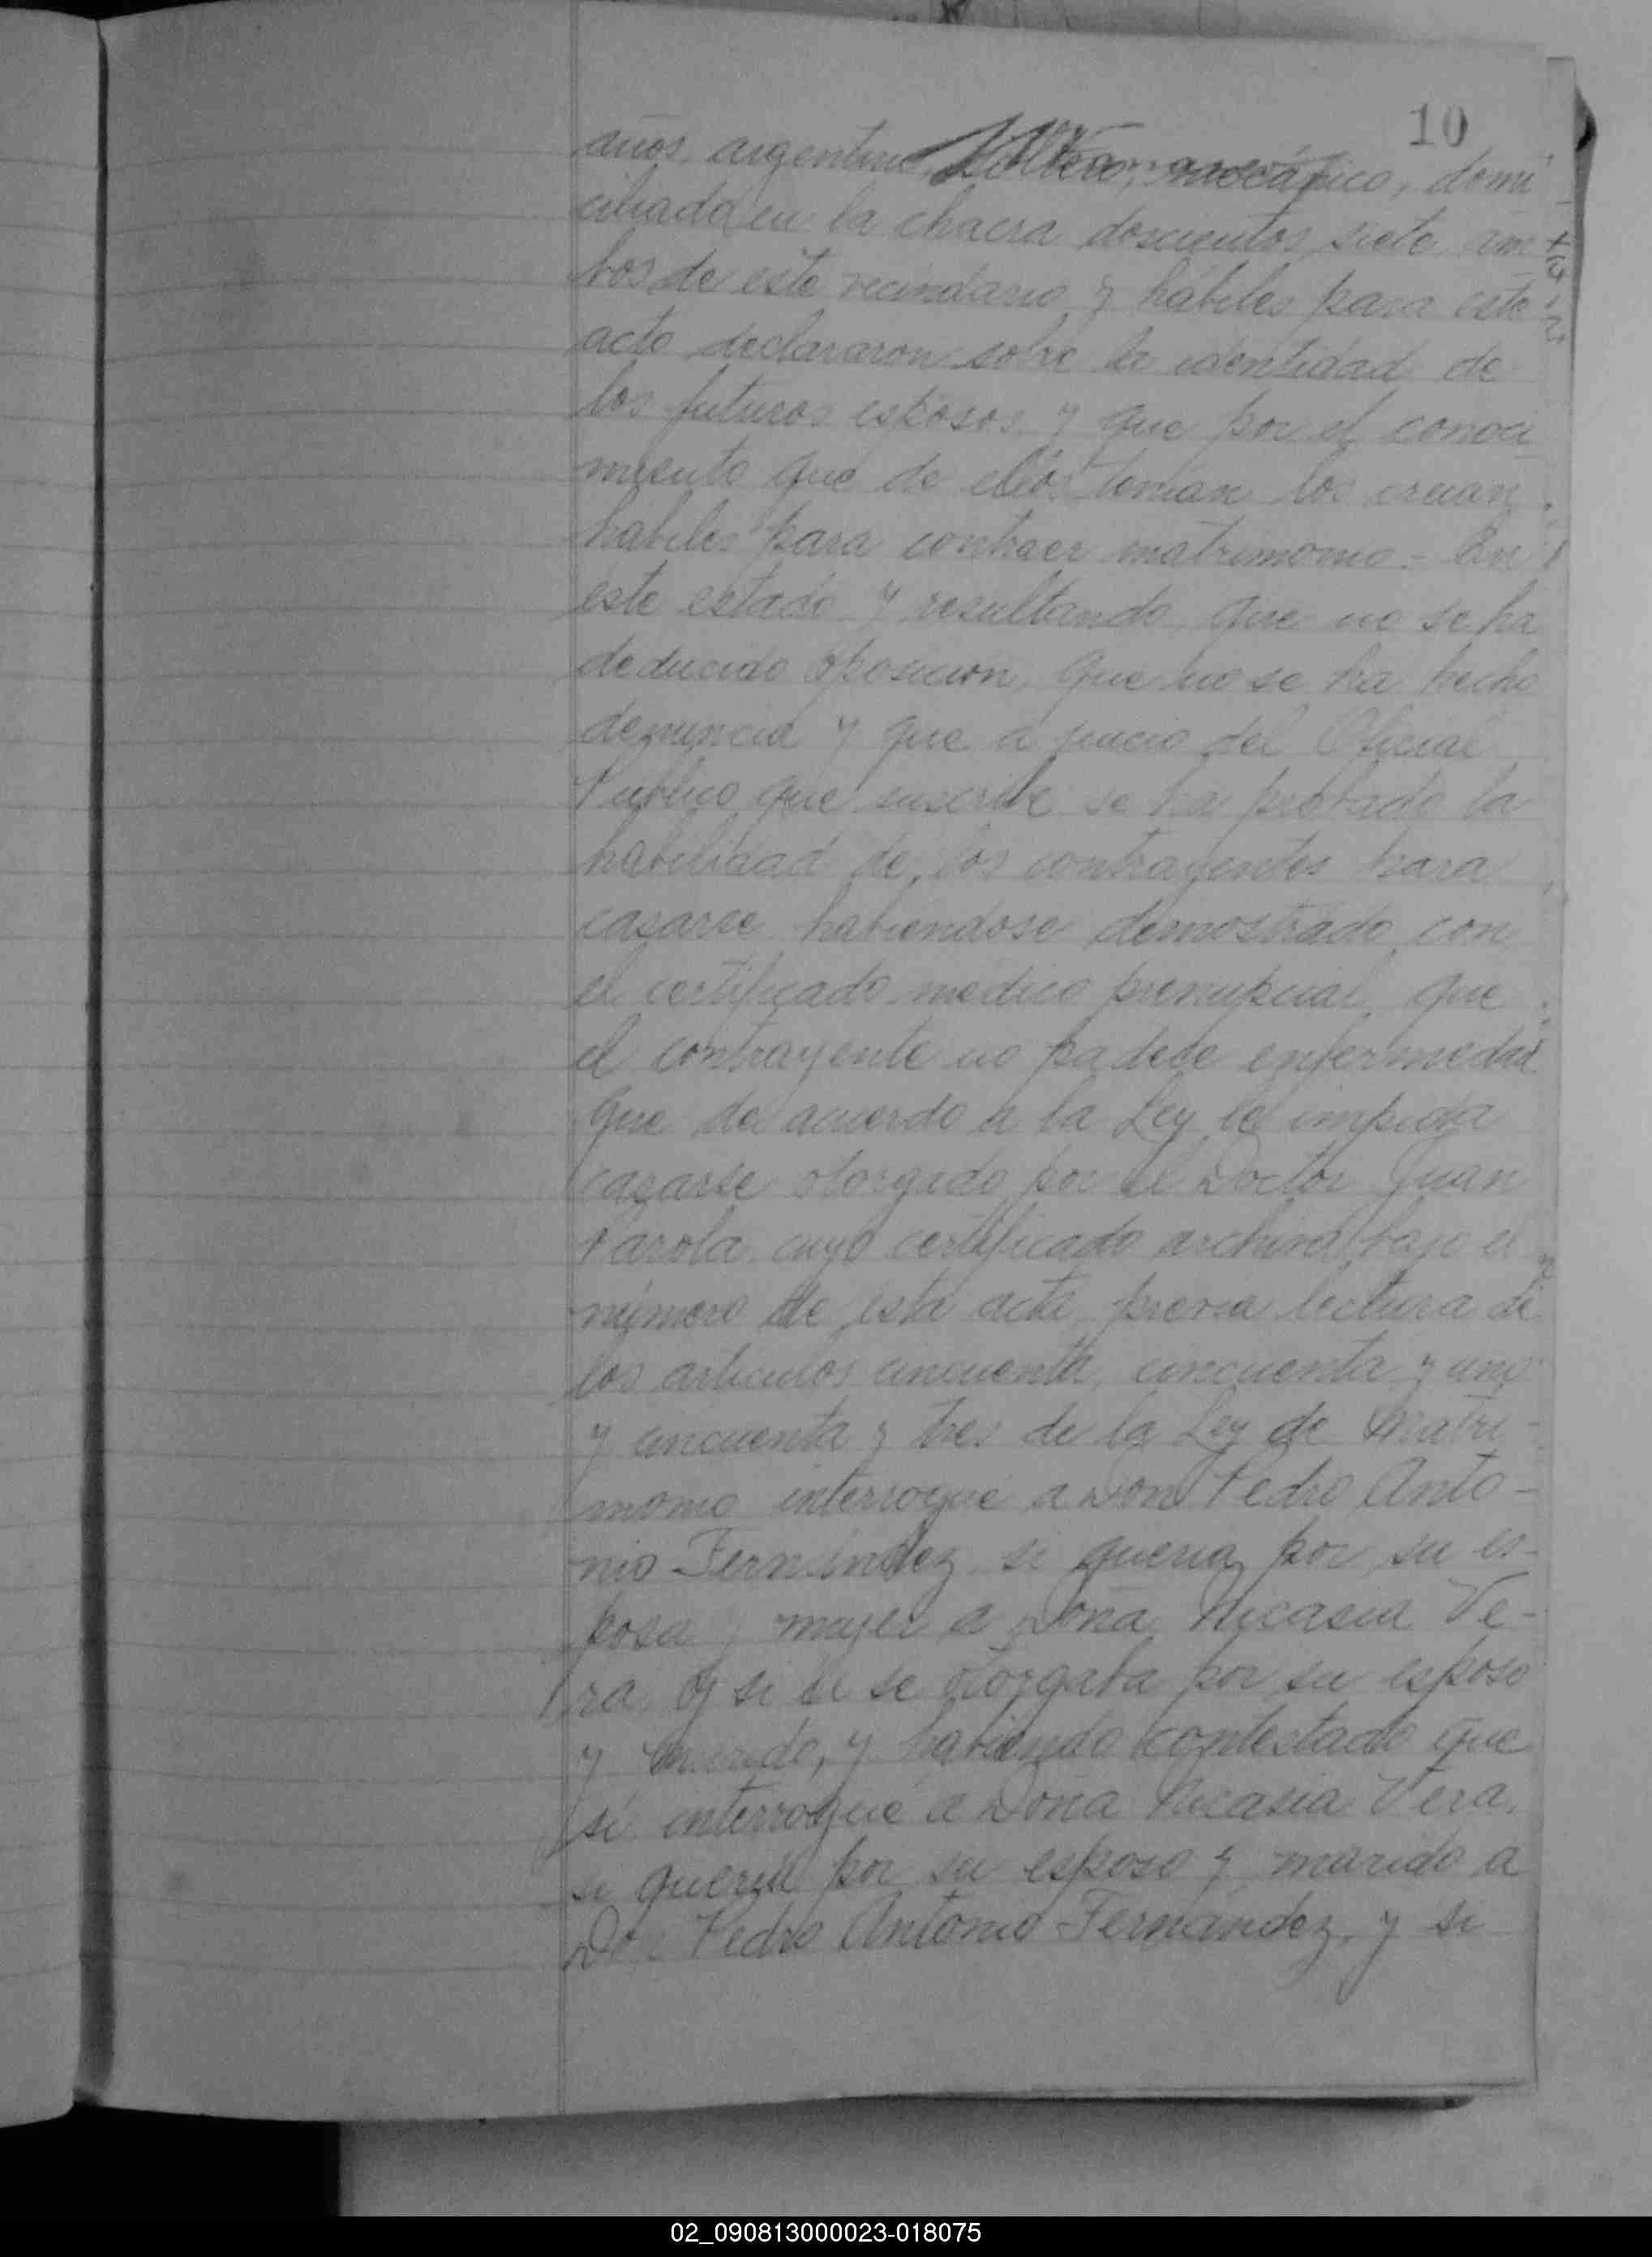 10
años, argentino, soltero, mecánico, domi
ciliado en la chacra doscientos siete, am
bos de este vecindario y hábiles para este
acto declararon sobre la identidad de
los futuros esposos, y que por el conoci
miento que de ellos tenían los creían
hábiles para contraer matrimonio - En
este estado y resultando que no se ha
deducido oposición, que no se ha hecho
denuncia y que a juicio del Oficial
Público que suscribe se ha probado la
habilidad de los contrayentes para
casarse habiendose demostrado con
el certificado médico prenupcial, que
el contrayente no padece enfermedad
que de acuerdo a la Ley le impida
casarse otorgado por el Doctor Juan
Parola cuyo certificado archivo bajo el
número de esta acta previa lectura de
los articulos cincuenta, cincuenta y uno
y cincuenta y tres de la Ley de Matri-
monio interrogué a Don Pedro Anto-
nio Fernández si quería por su es-
posa y mujer a Doña Nicasia Ve-
ra, y si él se otorgaba por su esposo
y marido, y habiendo contestado que
sí interrogué a Doña Nicasia Vera,
si quería por su esposo y marido a
Don Pedro Antonio Fernández, y si
02_090813000023-018075